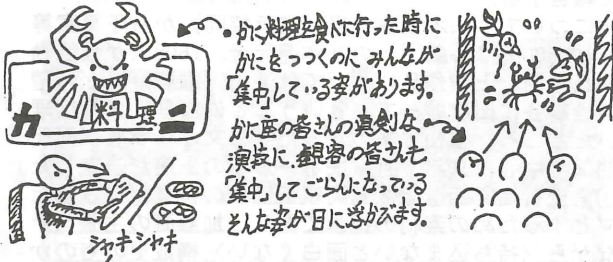 カニ
料理
シャキシャキ
・かに料理を食べに行った時に
かにをつつくのにみんなが
「集中」している姿があります。
かに座の皆さんの真剣な
演技に、観客の皆さんも
「集中」してごらんになっている
そんな姿が目に浮かびます。